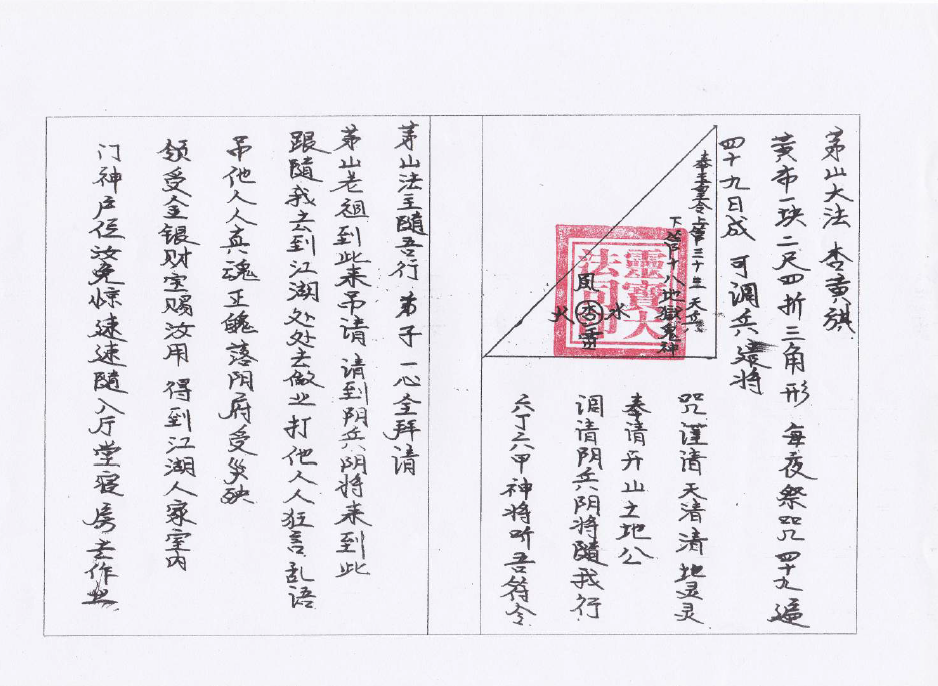 茅山大法 杏黄旗
黄布一块二尺四折三角形 每夜祭咒四十九遍
四十九日成 可调兵遣将
奉玉皇令上管三十三天兵
下管十八地獄鬼神
風
火
水
雷
靈寶大
法司印
咒 谨请天清清地灵灵
奉请开山土地公
调请阴兵阴将隨我行
六丁六甲神将听吾符令
茅山法主隨吾行 弟子一心全拜请
茅山老祖到此来吊请 请到阴兵阴将来到此
跟隨我去到江湖处处去做业打他人人狂言乱语
吊他人人真魂正魄落阴府受災殃
领受金银财宝赐汝用 得到江湖人家室内
门神户位汝免惊速速隨入厅堂寝房去作业